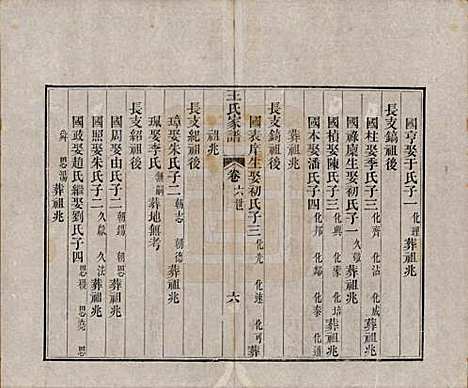 國亨娶于氏子一 化理 葬祖兆
長支鎬祖後
國柱娶季氏子三 化齊 化沾 化咸 葬祖兆
國祿廩生娶初氏子一 久 葬祖兆
國楨娶陳氏子三 化興 化東 化培 葬祖兆
國本娶潘氏子四 化邦 化歸 化泰 化通
葬祖兆
長支鑄祖後
國表庠生娶初氏子三 化光 化達 化可 葬
王氏家譜 卷六世 六
祖兆
長支紀祖後
璋娶朱氏子二 朝志 朝德 葬祖兆
珮娶李氏 無嗣 葬地無考
長支紹祖後
國周娶由氏子二 朝錫 朝恩 葬祖兆
國照娶朱氏子二 久獻 久法 葬祖兆
國政娶趙氏繼娶劉氏子四 思稷 思堯 思
舜 思湯 葬祖兆